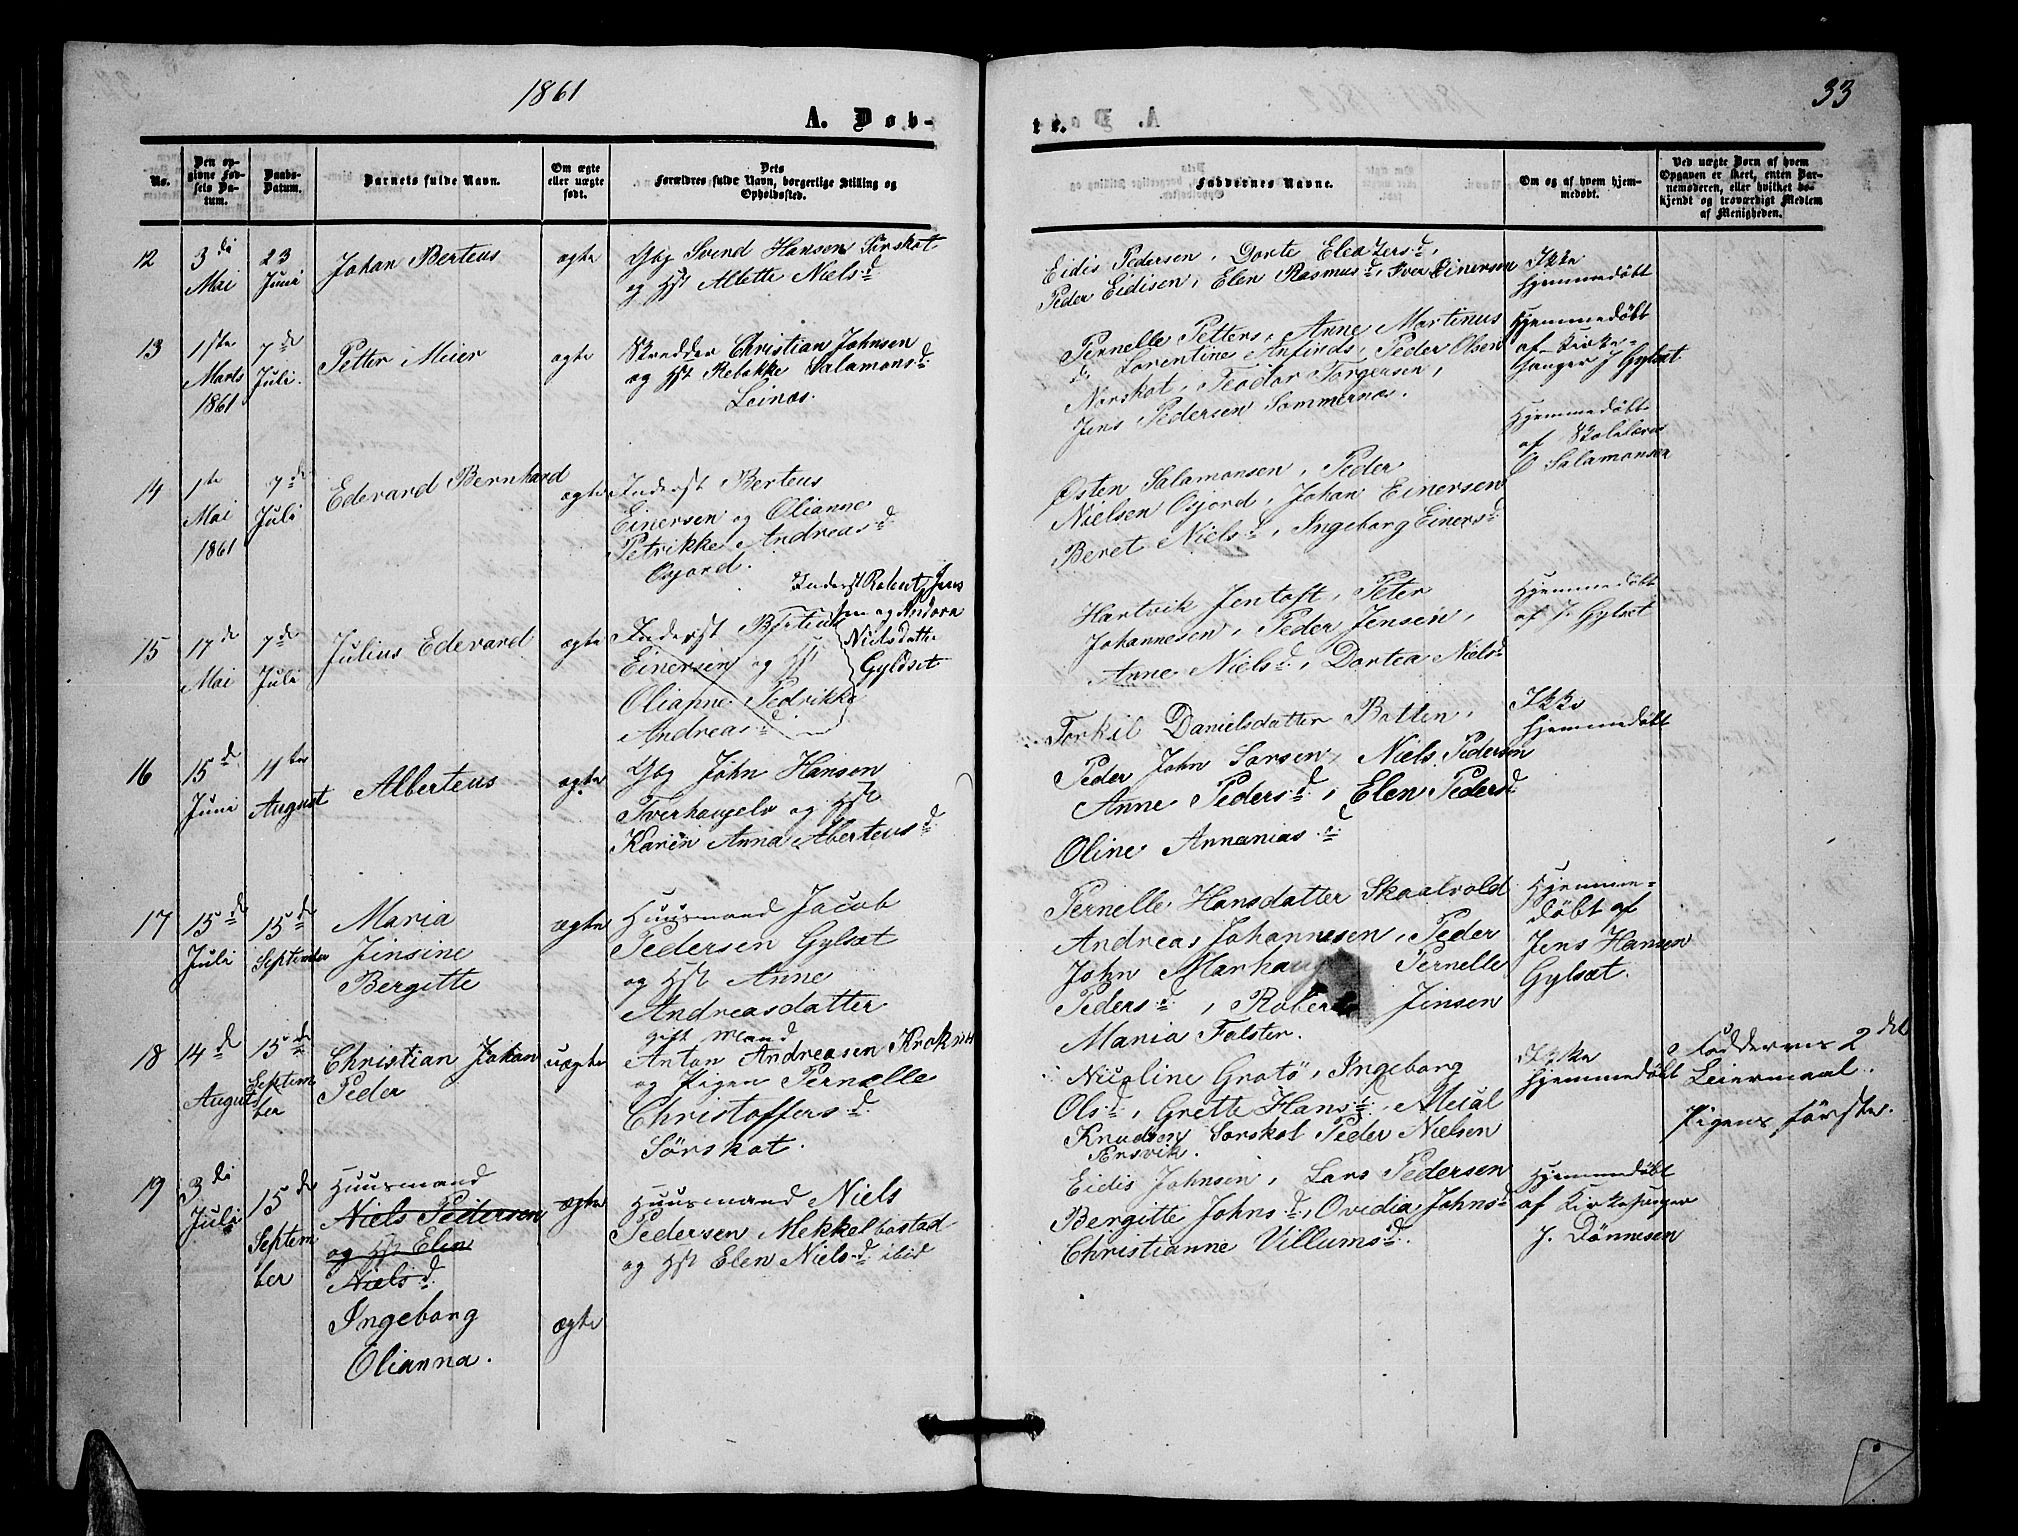 1861
33
A. Døb-
te.
No.
Den op-
givne Fød-
sels Da-
tum.
Daabs-
Datum.
Barnets fulde Navn.
Om ægte
eller uægte
født.
Dets
Forældres fulde Navn, borgerlige Stilling og
Opholdssted.
Faddernes Navne.
Om og af hvem hjem-
medøbt.
Ved uægte Born af hvem
Opgaven er skeet, enten Bar-
nemoderen, eller hvilket be-
kjendt og troværdigt Medlem
af Menigheden.
12
3di
Mai
23
Juni
Johan Berteus
ægte
Gbg Svend Hansen Sørskot
og Hst Albette Nielsd
Eidis Pedersen, Dorte Eleazersd,
Peder Eidisen, Elen Rasmusd, Iver Einersen
Ikke
hjemmedøbt
13
1ste
Marts
1861
7de
Juli.
Petter Meier
ægte
Skredder Christian Johnsen
og Hst Rebekke Salamonsd
Leines.
Pernelle Petters, Anne Martinus
d Lorentine Anfinds, Peder Olsen
Nørskot, Teodor Torgersen,
Jens Pedersen Sommernes.
Hjemmedøbt
af Kirke-
sanger J Gylset
14
1te
Mai
1861
7de
Juli
Edevard Bernhard
ægte
Inderst Berteus
Einersen og Olianne
Petrikke Andreasd
Osjord.
Østen Salamonsen, Peder
Nielsen Osjord, Johan Einersen
Beret Nielsd, Ingeborg Einersd
Hjemmedøbt
af Skolelærer
O Salamonsen
15
17de
Mai
7de
Juli
Julius Edevard
ægte
Inderst Berteus
Einersen og Hst
Olianne Pedrikke
Andreasd
Inderst Robert Jens
sen og Andora
Nielsdatter
Gyldset
Hartvik Jentoft, Peter
Johannesen, Peder Jensen,
Anne Nielsd, Dortea Nielsd
Hjemmedøbt
af J. Gylset
16
15d
Juni
11te
August
Alberteus
ægte
Gbg John Hansen
Tverhaugelv og Hst
Karen Anna Aberteusd
Torkil Danielsdatter Botten,
Peder John Sørsen, Niels Pedersen
Anne Pedersd, Elen Pedersd
Oline Annaniasd
Ikke
hjemmedøbt
17
15de
Juli
15de
September
Maria
Jinsine
Bergitte
ægte
Huusmand Jacob
Pedersen Gylset
og Hst Anne
Andreasdatter
Pernelle Hansdatter Skaalvold
Andreas Johannesen, Peder
John Pernelle
Pedersd, Jinsen
Maria Falster.
Hjemme-
døbt af
Jens Hansen
Gylset.
18
14d
August
15de
Septem
ber
Christian Johan
Peder
uægte
gift Mand
Anton Andreasen
og Pigen Pernelle
Christoffersd
Sørskot.
Nicoline Grøtø, Ingeborg
Olsd, Grette Hansd,
Knudsen Sørskot Peder Nielsen
Ærsvik.
Ikke
hjemmedøbt
Fadderens 2det
Leiermaal.
Pigens første.
19
3di
Juli
15de
Septem
ber
Huusmand
Niels Pedersen
og Hst Elen
Nielsd
Ingeborg
Olianna.
ægte
ægte
Huusmand Niels
Pedersen Mekkelbostad
og Hst Elen Nielsd ibid
Eidis Johnsen, Lars Pedersen
Bergitte Johnsd, Ovidia Johnsd
Christianne Villumsd.
Hjemmedøbt
af Kirkesanger
J. Dönnesen